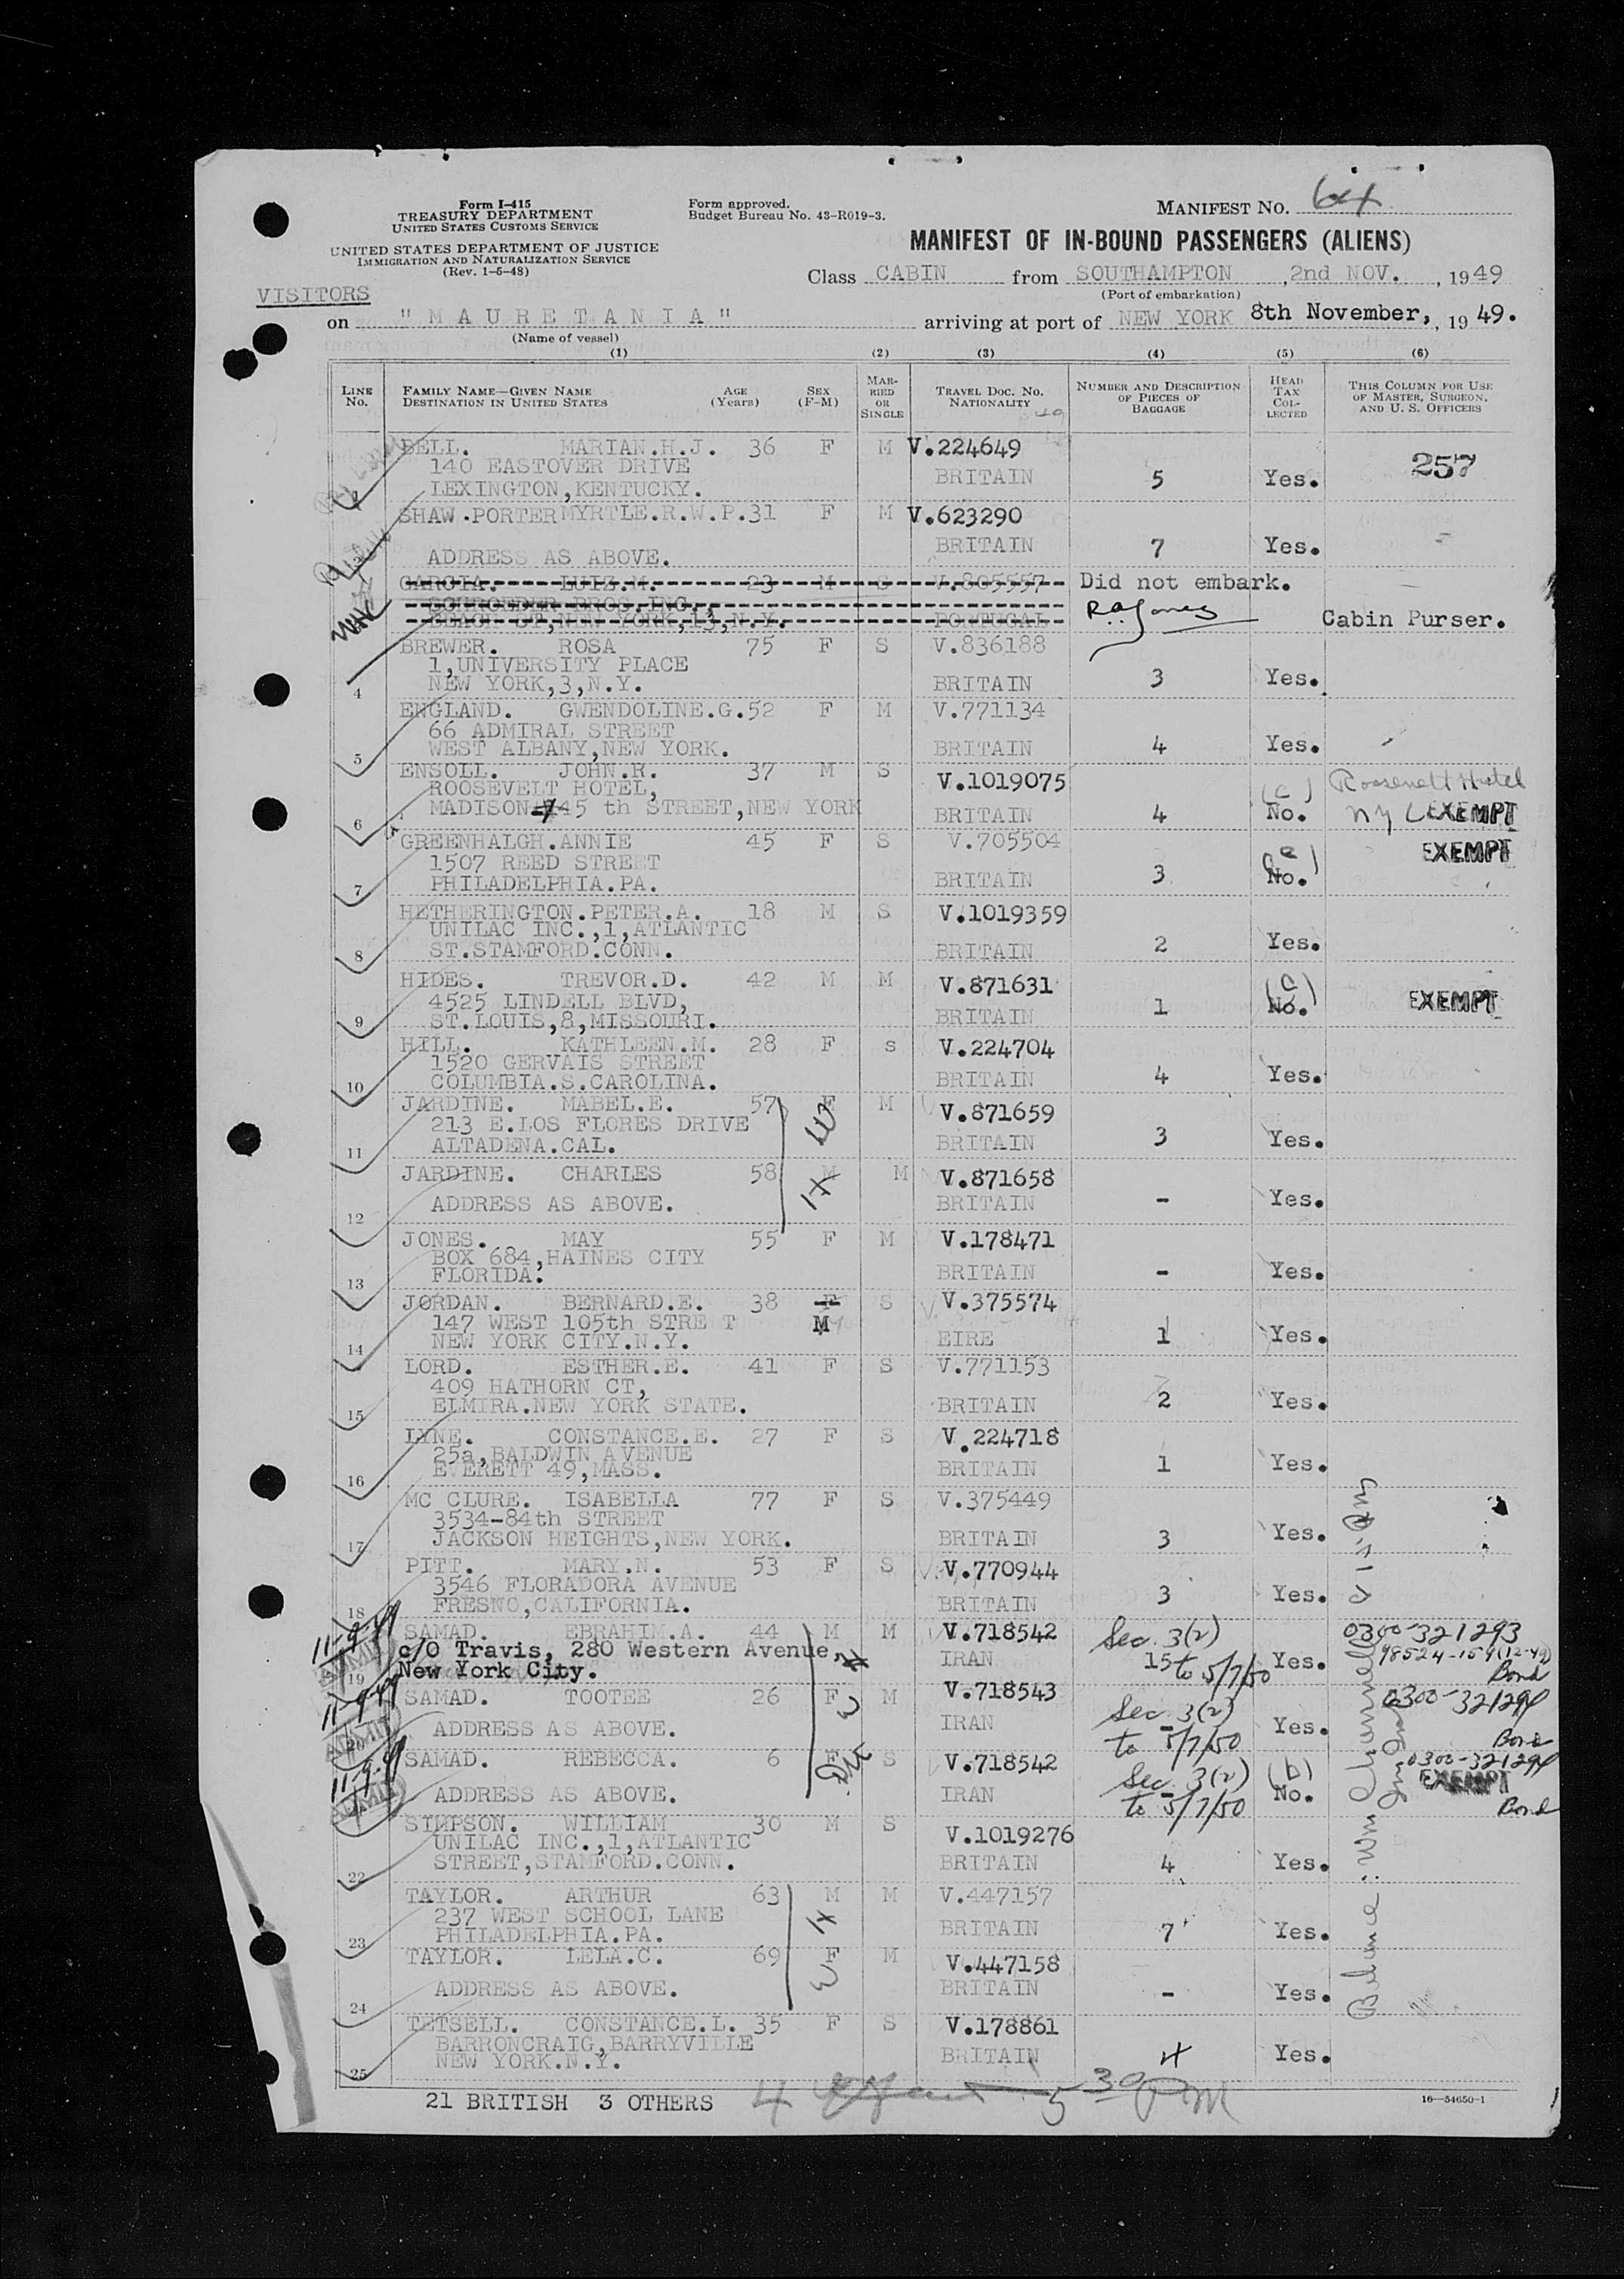 Form I-415
TREASURY DEPARTMENT
UNITED STATES CUSTOMS SERVICE
UNITED STATES DEPARTMENT OF JUSTICE
IMMIGRATION AND NATURALIZATION SERVICE
(Rev. 1-6-48)
Form approved.
Budget Bureau No. 43-R019-3.
MANIFEST NO. 64
MANIFEST OF IN-BOUND PASSENGERS (ALIENS)
Class CABIN from SOUTHAMPTON, 2nd NOV., 1949
(Port of embarkation)
VISITORS
on "MAURETANIA" arriving at port of NEW YORK 8th November, 1949.
(Name of vessel)
(1) (2) (3) (4) (5) (6)
LINE NO. FAMILY NAME—GIVEN NAME DESTINATION IN UNITED STATES AGE (Years) SEX (F-M) MARRIED OR SINGLE TRAVEL DOC. NO. NATIONALITY NUMBER AND DESCRIPTION OF PIECES OF BAGGAGE HEAD TAX COLLECTED THIS COLUMN FOR USE OF MASTER, SURGEON, AND U. S. OFFICERS
BELL. MARIAN.H.J. 36 F M V.224649
140 EASTOVER DRIVE 257
LEXINGTON,KENTUCKY. BRITAIN 5 Yes.
SHAW.PORTER MYRTLE.R.W.P. 31 F M V.623290
ADDRESS AS ABOVE. BRITAIN 7 Yes.
GARCIA. LUIZ.M. 23 M S V.805557 Did not embark.
SCHROEDER BROS.INC., R.A. Jones Cabin Purser.
BEACH ST,NEW YORK,13,N.Y. PORTUGAL
BREWER. ROSA 75 F S V.836188
1,UNIVERSITY PLACE
4 NEW YORK,3,N.Y. BRITAIN 3 Yes.
ENGLAND. GWENDOLINE.G. 52 F M V.771134
66 ADMIRAL STREET
5 WEST ALBANY,NEW YORK. BRITAIN 4 Yes.
ENSOLL. JOHN.R. 37 M S V.1019075 Roosevelt Hotel
ROOSEVELT HOTEL, (c)
6 MADISON 45 th STREET,NEW YORK BRITAIN 4 No. NY EXEMPT
GREENHALGH.ANNIE 45 F S V.705504 EXEMPT
1507 REED STREET
7 PHILADELPHIA.PA. BRITAIN 3 No.
HETHERINGTON.PETER.A. 18 M S V.1019359
UNILAC INC.,1,ATLANTIC
8 ST.STAMFORD.CONN. BRITAIN 2 Yes.
HIDES. TREVOR.D. 42 M M V.871631
4525 LINDELL BLVD, EXEMPT
9 ST.LOUIS,8,MISSOURI. BRITAIN 1 No.
HILL. KATHLEEN.M. 28 F s V.224704
1520 GERVAIS STREET
10 COLUMBIA.S.CAROLINA. BRITAIN 4 Yes.
JARDINE. MABEL.E. 57 F M V.871659
213 E.LOS FLORES DRIVE
11 ALTADENA.CAL. BRITAIN 3 Yes.
JARDINE. CHARLES 58 M M V.871658
12 ADDRESS AS ABOVE. BRITAIN - Yes.
JONES. MAY 55 F M V.178471
BOX 684,HAINES CITY
13 FLORIDA. BRITAIN - Yes.
JORDAN. BERNARD.E. 38 F S V.375574
147 WEST 105th STRE T M
14 NEW YORK CITY.N.Y. EIRE 1 Yes.
LORD. ESTHER.E. 41 F S V.771153
409 HATHORN CT,
15 ELMIRA.NEW YORK STATE. BRITAIN 2 Yes.
LYNE. CONSTANCE.E. 27 F S V.224718
25a,BALDWIN AVENUE
16 EVERETT 49,MASS. BRITAIN 1 Yes.
MC CLURE. ISABELLA 77 F S V.375449
3534-84th STREET
17 JACKSON HEIGHTS,NEW YORK. BRITAIN 3 Yes.
PITT. MARY.N. 53 F S V.770944
3546 FLORADORA AVENUE
18 FRESNO,CALIFORNIA. BRITAIN 3 Yes.
11-9-49 SAMAD. EBRAHIM.A. 44 M M V.718542 Sec. 3(2) 0300-321293
ADMIT c/O Travis, 280 Western Avenue, IRAN 15 to 5/7/50 Yes. 98524-
19 New York City. Bond
11-9-49 SAMAD. TOOTEE 26 F M V.718543 Sec. 3(2) 0300-321294
ADMIT 20 ADDRESS AS ABOVE. IRAN - to 5/7/50 Yes. Bond
11-9-49 SAMAD. REBECCA. 6 F S V.718542 Sec. 3(2) (b) 0300-321294
ADMIT ADDRESS AS ABOVE. IRAN - to 5/7/50 No. EXEMPT Bond
SIMPSON. WILLIAM 30 M S V.1019276
UNILAC INC.,1,ATLANTIC
22 STREET,STAMFORD.CONN. BRITAIN 4 Yes.
TAYLOR. ARTHUR 63 M M V.447157
237 WEST SCHOOL LANE
23 PHILADELPHIA.PA. BRITAIN 7 Yes.
TAYLOR. LELA.C. 69 F M V.447158
24 ADDRESS AS ABOVE. BRITAIN - Yes.
TETSELL. CONSTANCE.L. 35 F S V.178861
BARRONCRAIG,BARRYVILLE
25 NEW YORK.N.Y. BRITAIN 4 Yes.
21 BRITISH 3 OTHERS 4 5 30 PM
16—54650-1